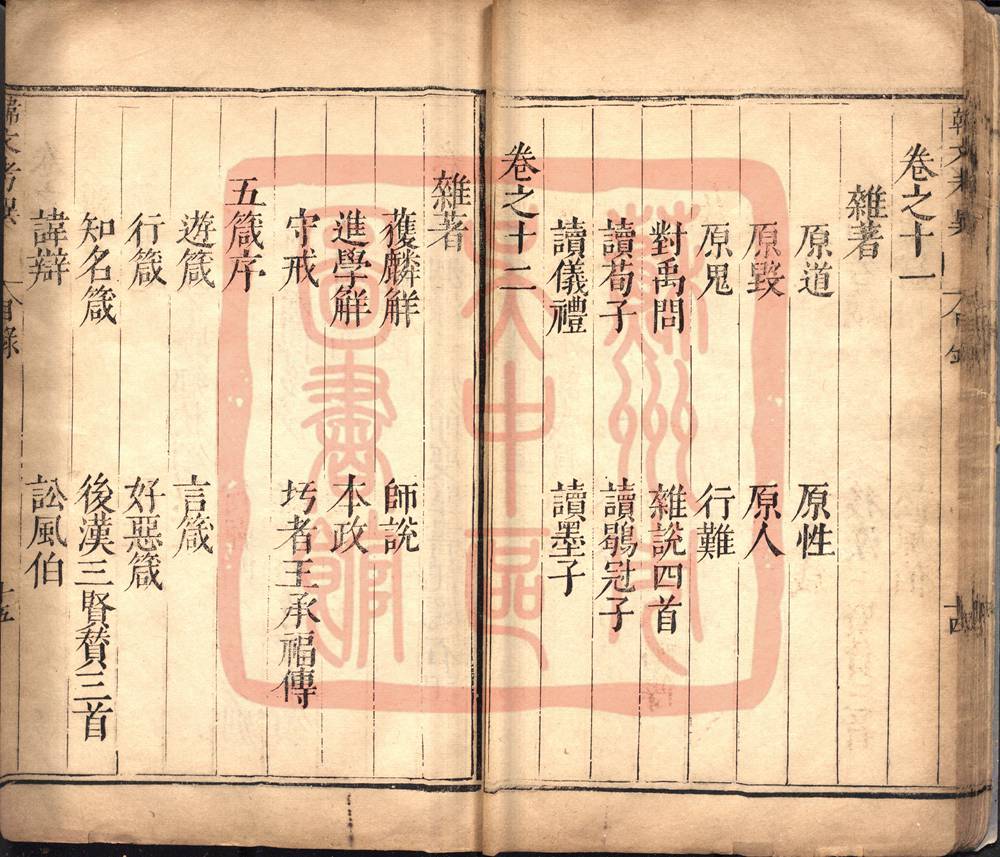 卷之十一
雜著
原道 原性
原毀 原人
原鬼 行難
對禹問 雜說四首
讀荀子 讀鶡冠子
讀儀禮 讀墨子
卷之十二
雜著
獲麟觧 師說
進學觧 本政
守戒 圬者王承福傳
五箴序
遊箴 言箴
行箴 好惡箴
知名箴 後漢三賢賛三首
諱辯 訟風伯
韓文考異 目錄 十五